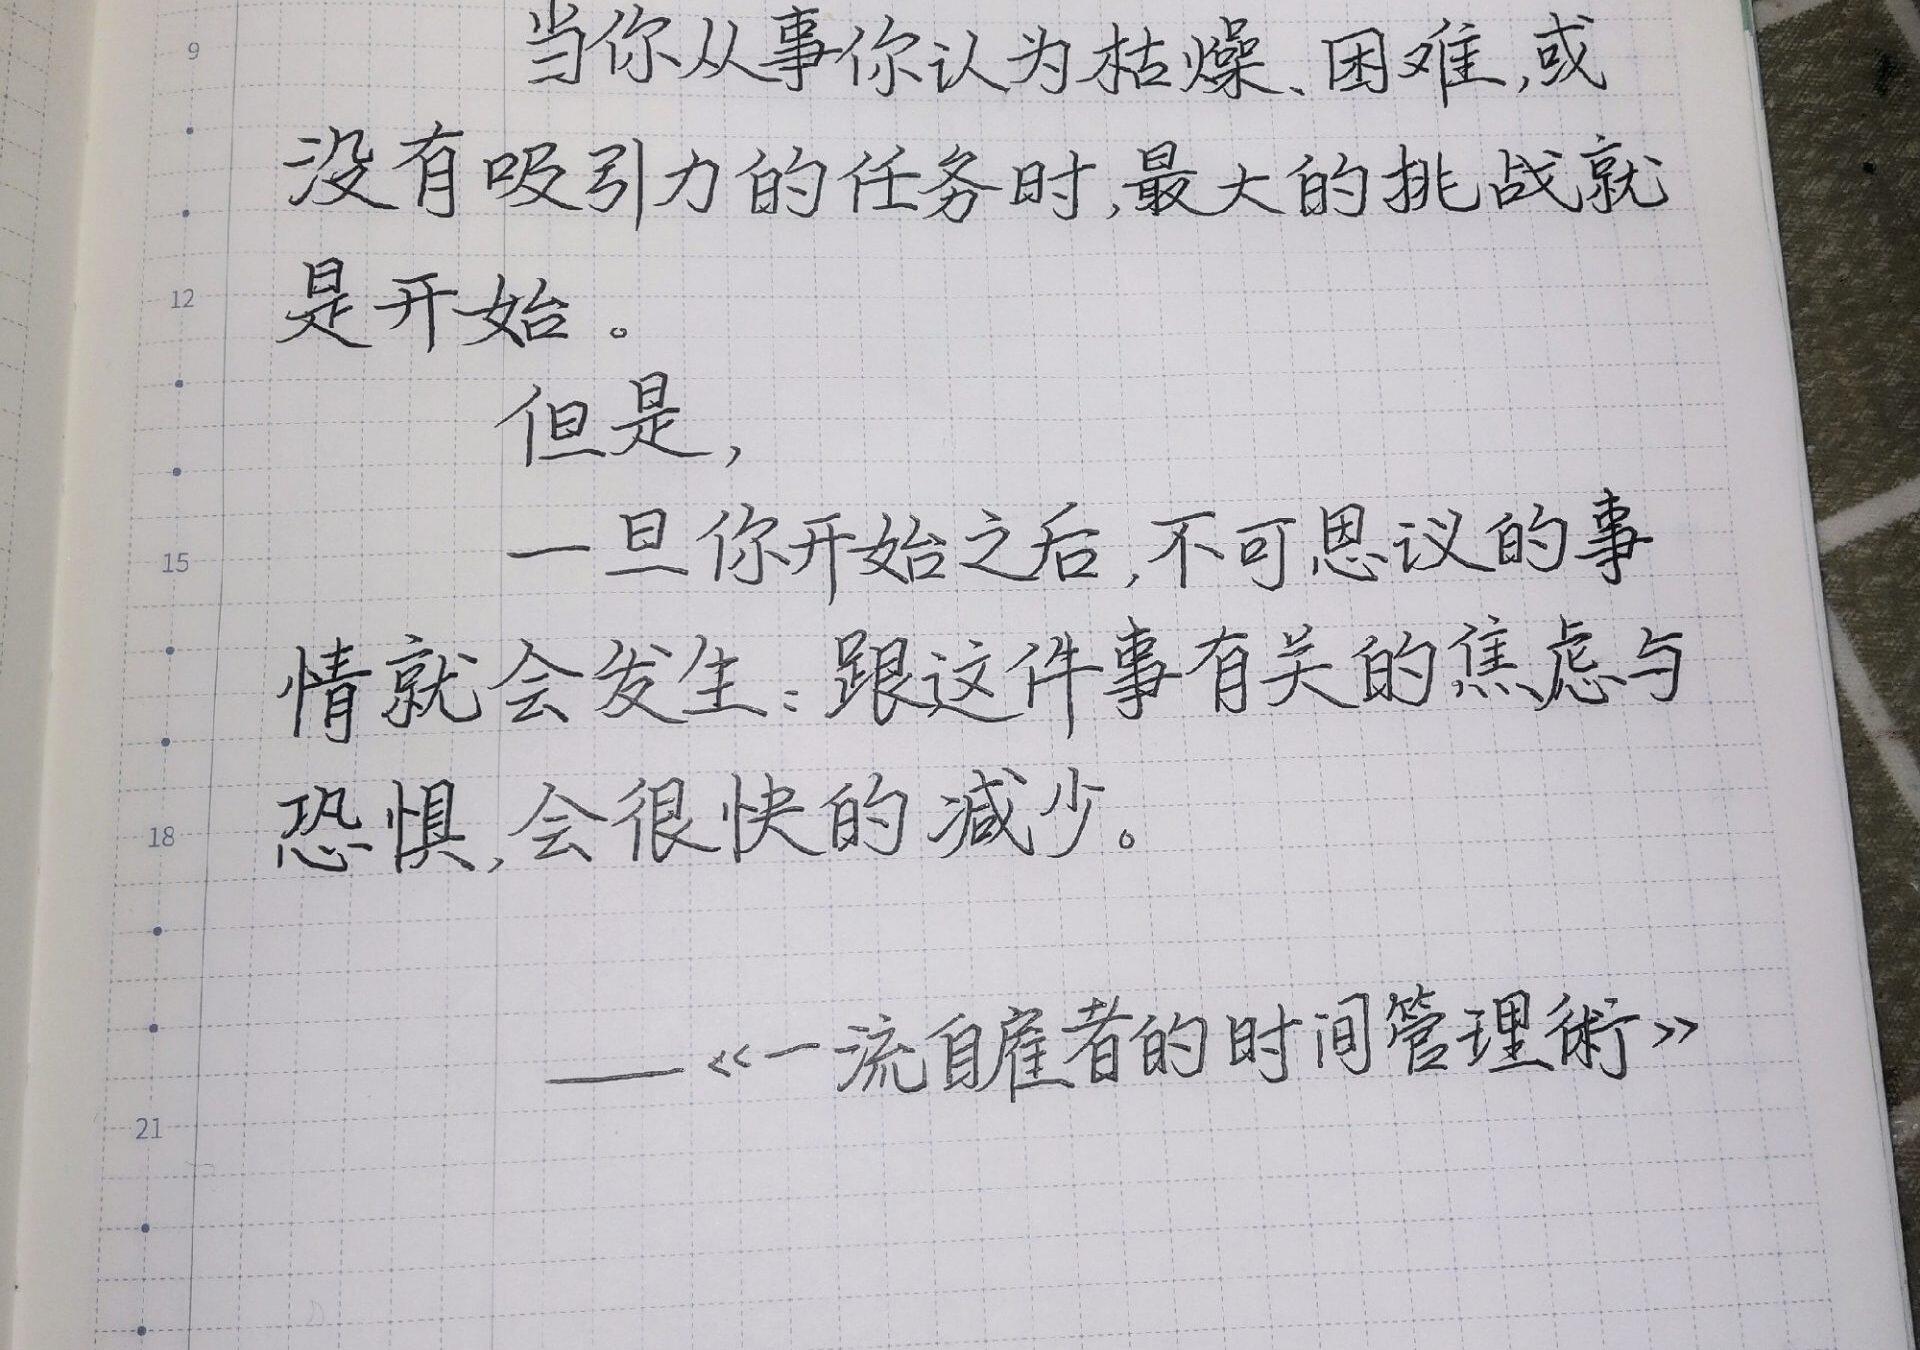 9
当你从事你认为枯燥、困难,或
没有吸引力的任务时,最大的挑战就
12
是开始。
但是,
一旦你开始之后,不可思议的事
15
情就会发生:跟这件事有关的焦虑与
恐惧,会很快的减少。
18
——《一流自雇者的时间管理術》
21